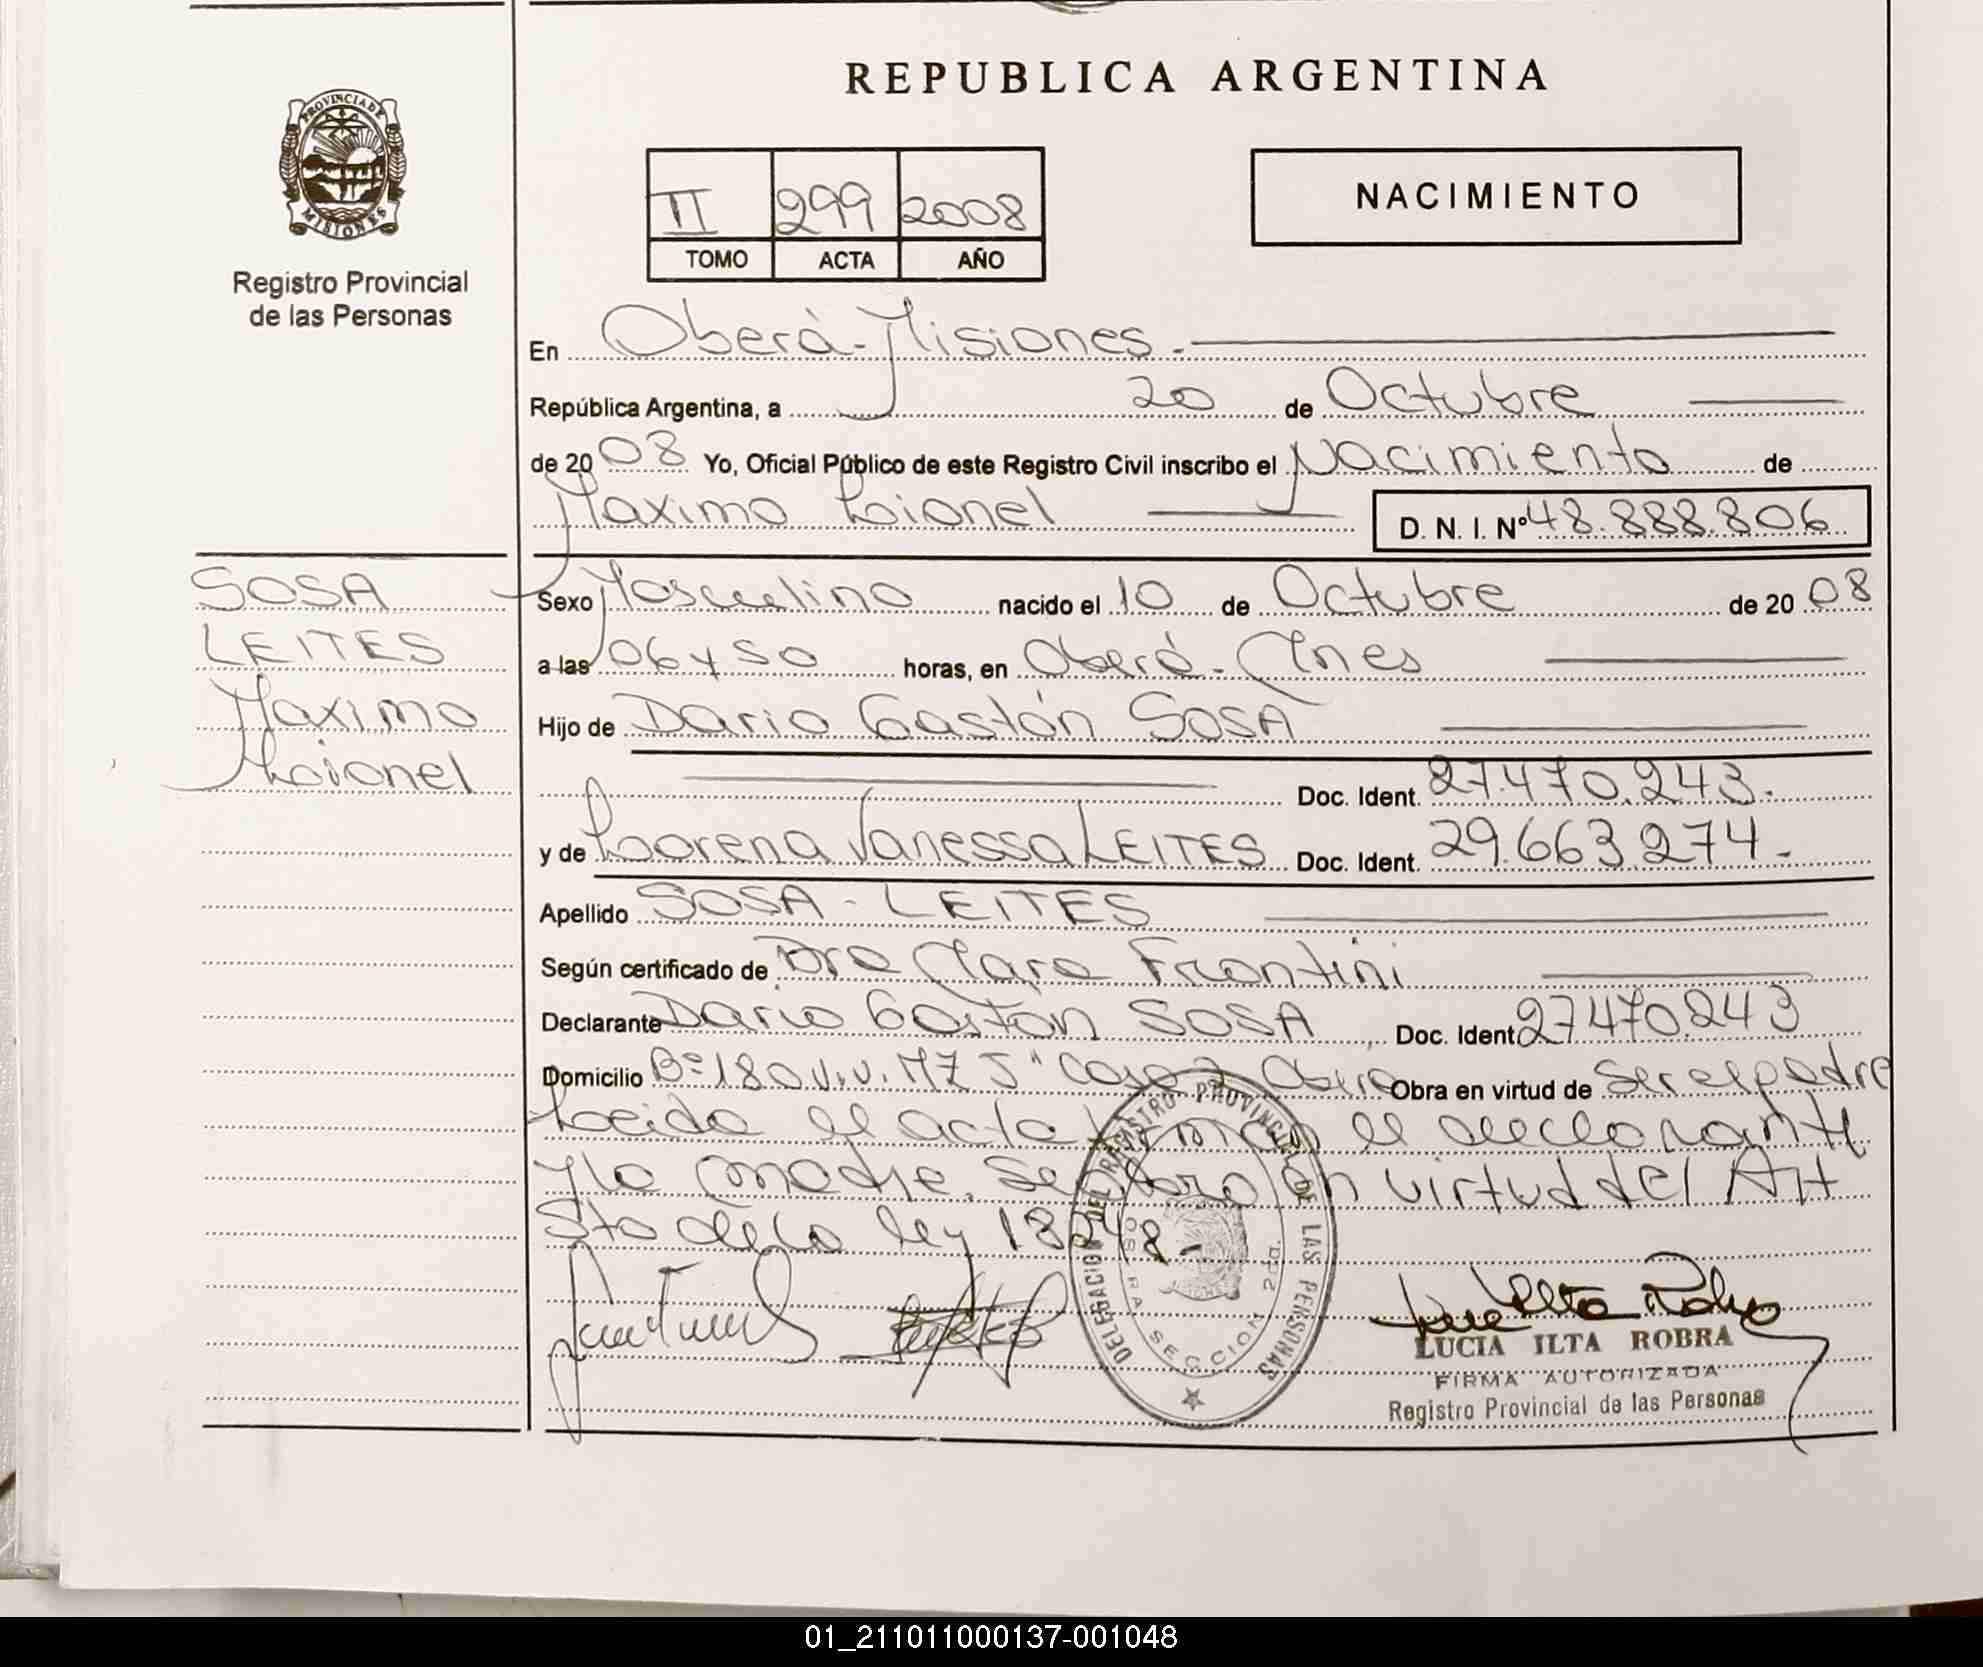 REPUBLICA ARGENTINA
PROVINCIA DE MISIONES
Registro Provincial
de las Personas
II 299 2008
TOMO ACTA AÑO
NACIMIENTO
En Oberá - Misiones.-
República Argentina, a 20 de Octubre
de 2008 Yo, Oficial Público de este Registro Civil inscribo el Nacimiento de
Maximo Lionel D. N. I. Nº 48.888.806
SOSA
LEITES
Maximo
Lionel
Sexo Masculino nacido el 10 de Octubre de 2008
a las 06 y 50 horas, en Oberá - Mnes
Hijo de Dario Gastón SOSA
Doc. Ident. 27.470.243.
y de Lorena Vanessa LEITES Doc. Ident. 29.663.274.
Apellido SOSA - LEITES
Según certificado de Dra Clara Frontini
Declarante Dario Gastón SOSA Doc. Ident 27.470.243
Domicilio Bº 180 Viv. MZ J" Casa 2 Oberá Obra en virtud de Ser el padre
Leida el acta firman el declarante
y la madre. Se labro en virtud del Art
5to de la ley 18248-
DELEGACION DEL REGISTRO PROVINCIAL DE LAS PERSONAS
SECCION 2da.
LUCIA ILTA ROBRA
FIRMA AUTORIZADA
Registro Provincial de las Personas
01_211011000137-001048